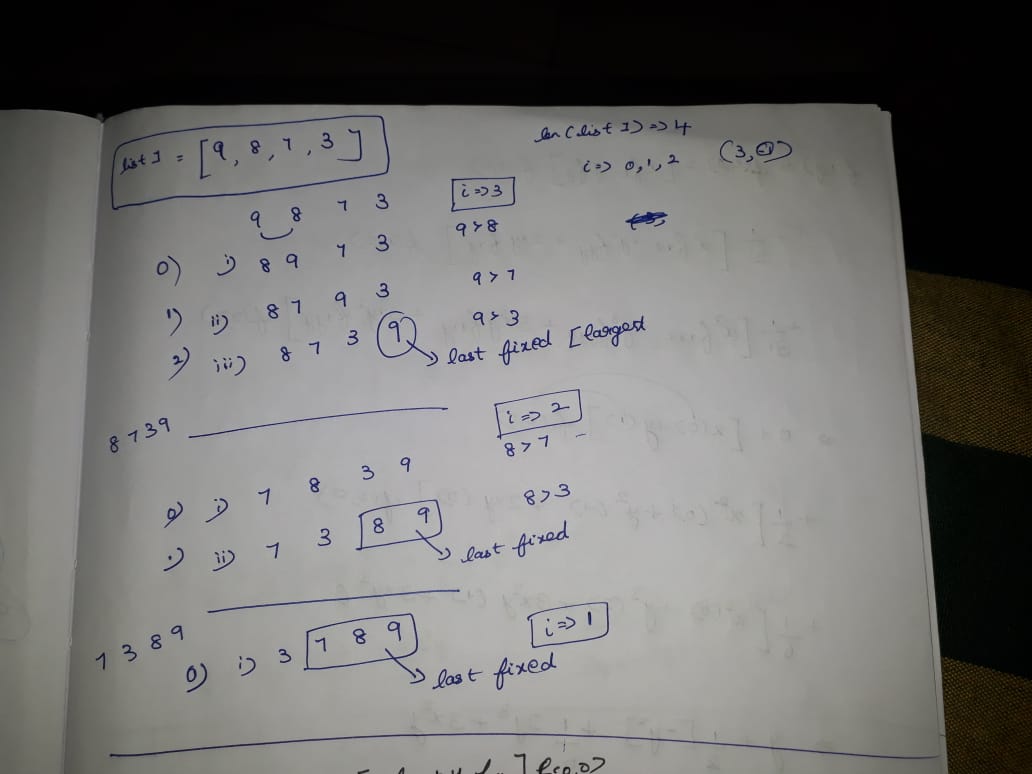 list 1 = [9, 8, 7, 3]
len (list 1) => 4
i => 0, 1, 2
9 8 7 3
i => 3
9 > 8
0) i) 8 9 7 3
9 > 7
1) ii) 8 7 9 3
9 > 3
2) iii) 8 7 3 9
last fixed [largest
8 7 3 9
i => 2
8 > 7
0) i) 7 8 3 9
8 > 3
1) ii) 7 3 8 9
last fixed
7 3 8 9
i => 1
0) i) 3 7 8 9
last fixed